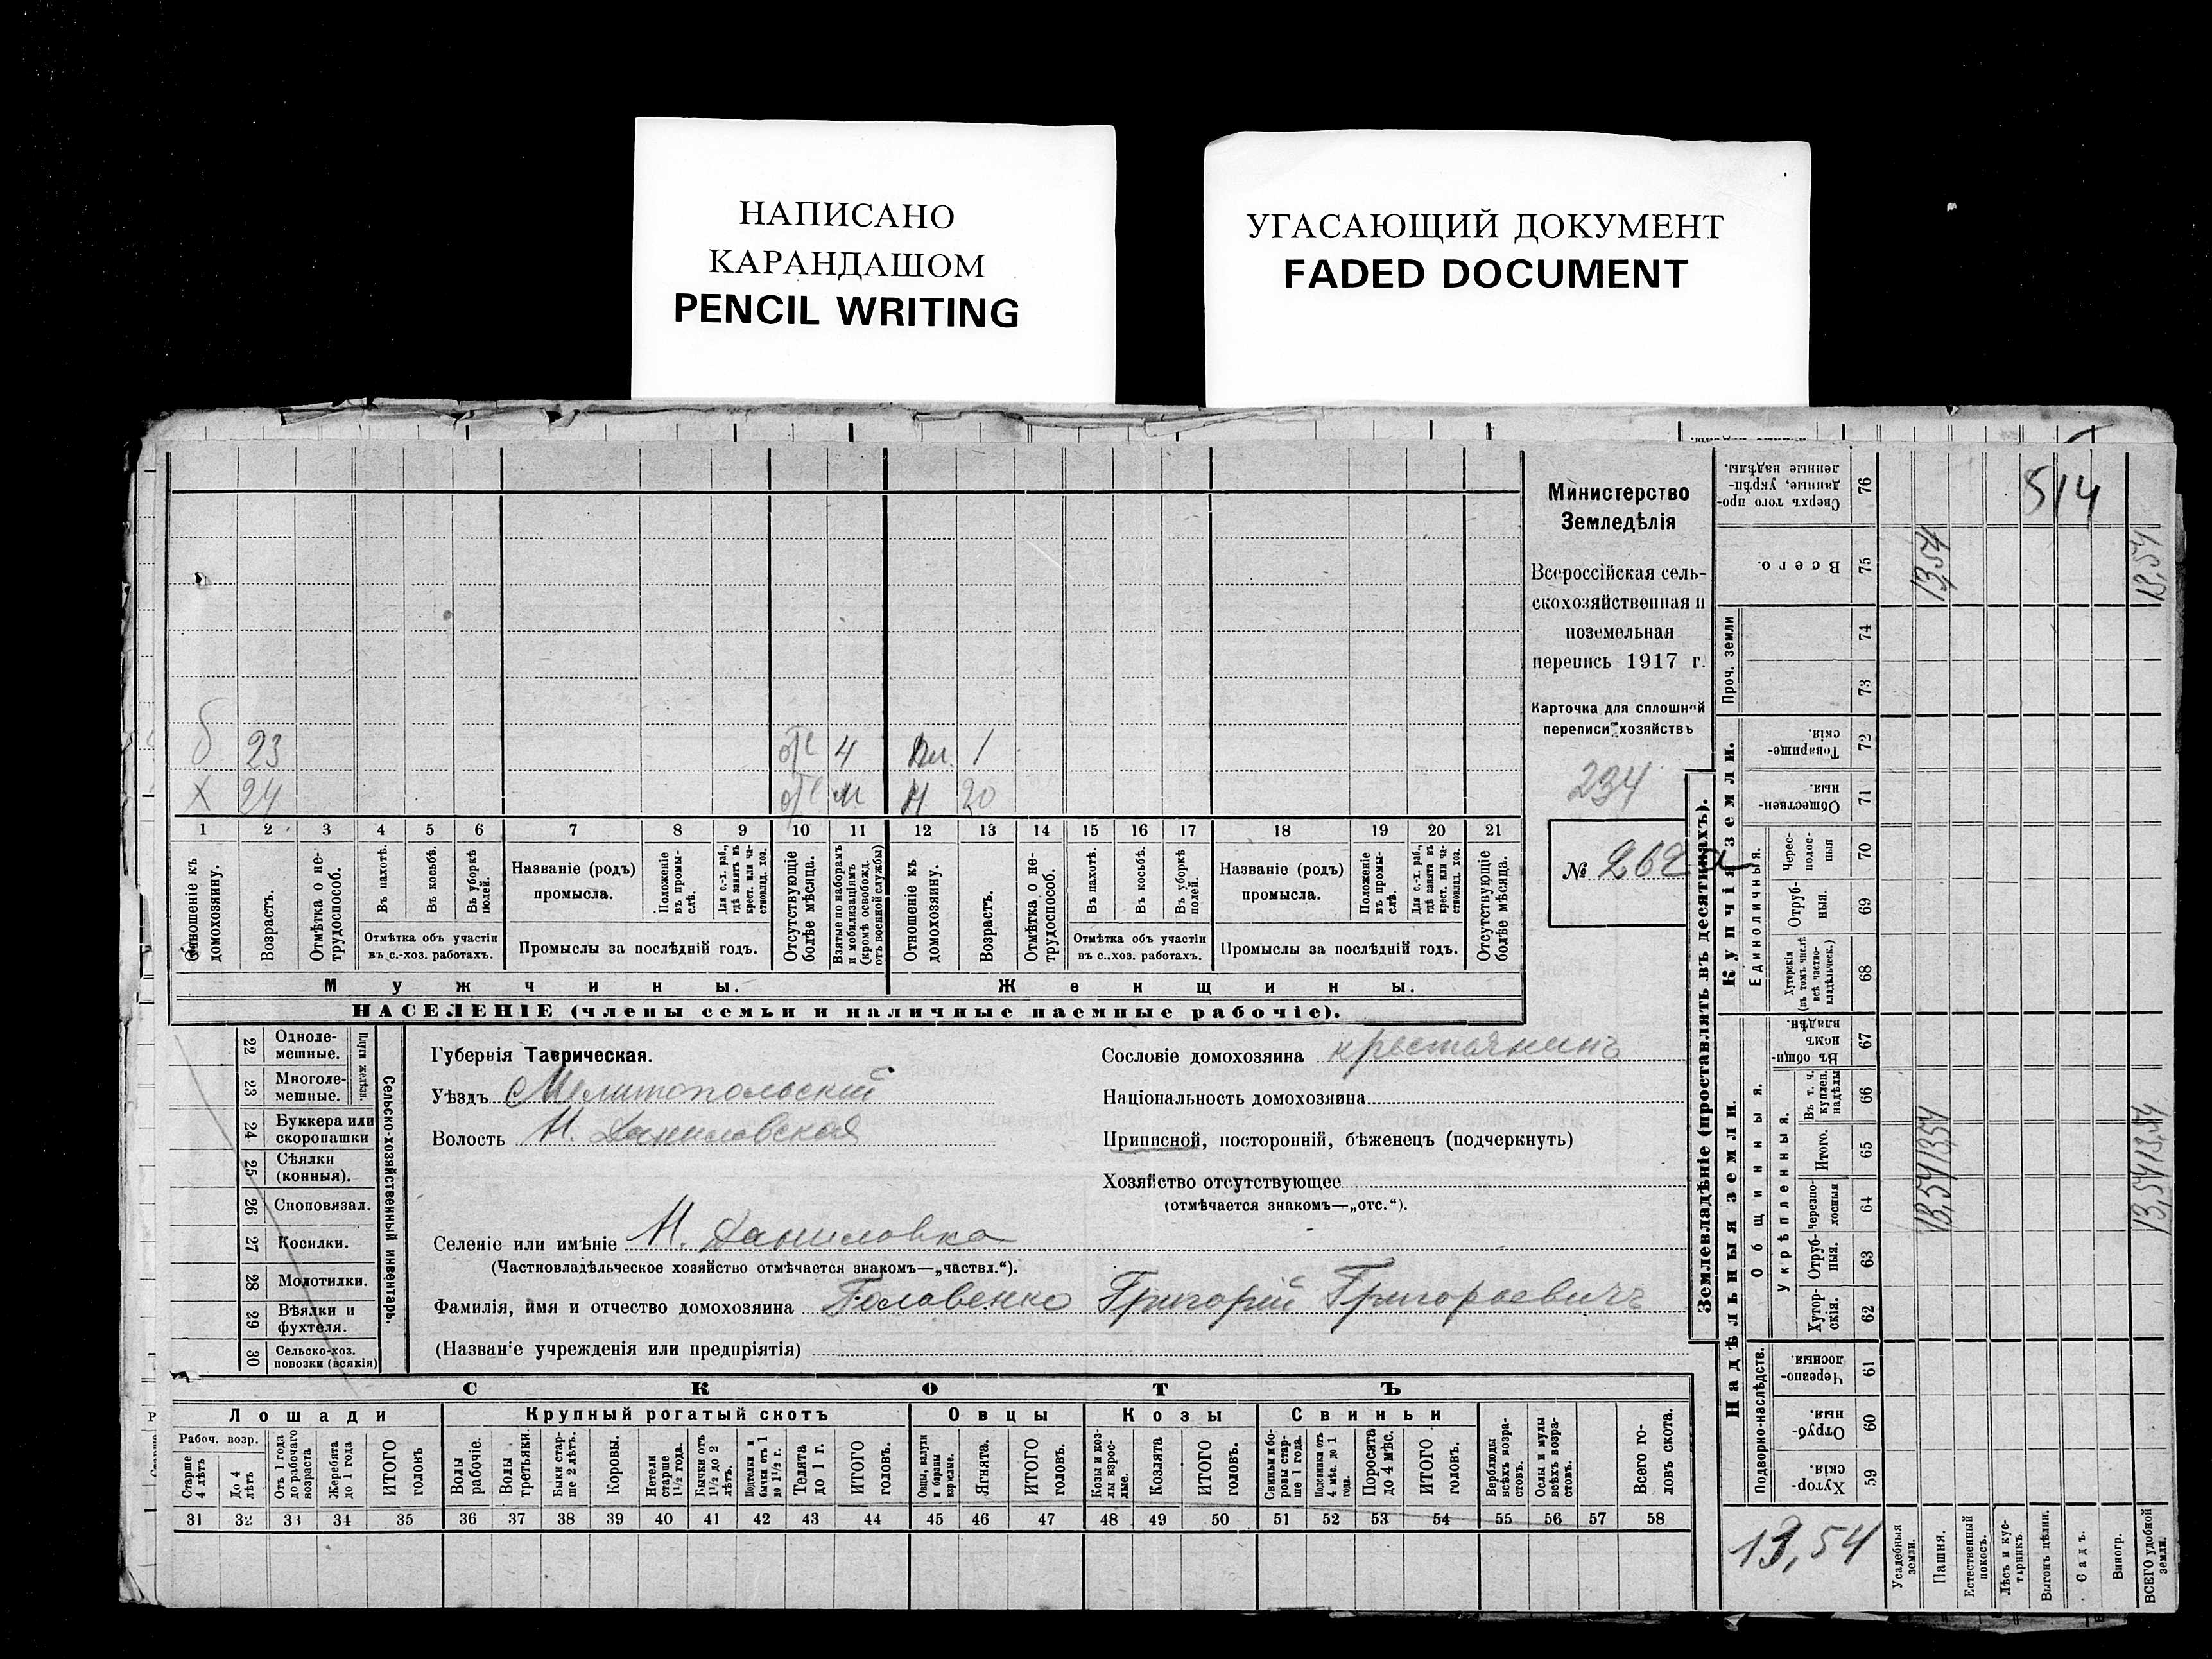 НАПИСАНО
КАРАНДАШОМ
PENCIL WRITING
УГАСАЮЩИЙ ДОКУМЕНТ
FADED DOCUMENT
Министерство
Земледѣлія
Всероссійская сель-
скохозяйственная и
поземельная
перепись 1917 г.
Карточка для сплошной
переписи хозяйствъ
234
№ 262
б 23 отс 4 1
Х 24 отс м Н 20
1 2 3 4 5 6 7 8 9 10 11 12 13 14 15 16 17 18 19 20 21
Отношеніе къ домохозяину.
Возрастъ.
Отмѣтка о не-трудоспособ.
Въ пахотѣ.
Въ косьбѣ.
Въ уборкѣ полей.
Отмѣтка объ участіи
въ с.-хоз. работахъ.
Названіе (родъ)
промысла.
Положеніе въ промы-слѣ.
Для с.-х. раб., гдѣ занятъ въ крест. или ча-стновлад. хоз.
Промыслы за послѣдній годъ.
Отсутствующіе болѣе мѣсяца.
Взятые по наборамъ и мобилизаціямъ (кромѣ освобожд. отъ военной службы)
Отношеніе къ домохозяину.
Возрастъ.
Отмѣтка о не-трудоспособ.
Въ пахотѣ.
Въ косьбѣ.
Въ уборкѣ полей.
Отмѣтка объ участіи
въ с.-хоз. работахъ.
Названіе (родъ)
промысла.
Положеніе въ промы-слѣ.
Для с.-х. раб., гдѣ занята въ крест. или ча-стновлад. хоз.
Промыслы за послѣдній годъ.
Отсутствующіе болѣе мѣсяца.
Мужчины. Женщины.
НАСЕЛЕНІЕ (члены семьи и наличные наемные рабочіе).
22 Одноле-мешные.
23 Многоле-мешные.
Плуги желѣзн.
24 Буккера или скоропашки
25 Сѣялки (конныя).
26 Сноповязал.
27 Косилки.
28 Молотилки.
29 Вѣялки и фухтеля.
30 Сельско-хоз. повозки (всякія)
Сельско-хозяйственный инвентарь.
Губернія Таврическая.
Уѣздъ Мелитопольскій
Волость Н. Даниловская
Селеніе или имѣніе Н. Даниловка
(Частновладѣльческое хозяйство отмѣчается знакомъ—„частвл.“).
Фамилія, имя и отчество домохозяина Головенко Григорій Григорьевичъ
(Названіе учрежденія или предпріятія)
Сословіе домохозяина крестьянинъ
Національность домохозяина
Приписной, посторонній, бѣженецъ (подчеркнуть)
Хозяйство отсутствующее
(отмѣчается знакомъ—„отс.“).
СКОТЪ
Лошади Крупный рогатый скотъ Овцы Козы Свиньи
Рабоч. возр.
Старше 4 лѣтъ
До 4 лѣтъ
Отъ 1 года до рабочаго возраста
Жеребята до 1 года
ИТОГО головъ
Волы рабочіе.
Волы третьяки.
Быки стар-ше 2 лѣтъ.
Коровы.
Нетели старше 1½ года.
Бычки отъ 1½ до 2 лѣтъ.
Подтелки и бычки отъ 1 до 1½ г.
Телята до 1 г.
ИТОГО головъ.
Овцы, валухи и бараны взрослые.
Ягнята.
ИТОГО головъ.
Козы и коз-лы взрос-лые.
Козлята
ИТОГО головъ.
Свиньи и бо-ровы стар-ше 1 года.
Подсвинки отъ 4 мѣс. до 1 года.
Поросята до 4 мѣс.
ИТОГО головъ.
Верблюды всѣхъ возра-стовъ.
Ослы и мулы всѣхъ возра-стовъ.
Всего го-ловъ скота.
31 32 33 34 35 36 37 38 39 40 41 42 43 44 45 46 47 48 49 50 51 52 53 54 55 56 57 58
Землевладѣніе (проставлять въ десятинахъ).
514
76 Сверхъ того про-данные, укрѣп-ленные надѣлы.
75 Всего. 13,54 13,54
Купчія земли.
Проч. земли
74
73
72 Товарище-скія.
71 Обществен-ныя.
Единоличныя.
70 Черес-полос-ныя
69 Отруб-ныя.
68 Хуторскія (въ томъ числѣ всѣ частно-владѣльческ.)
Надѣльныя земли.
Общинныя.
67 Въ общин-номъ владѣн.
Укрѣпленныя.
66 Въ т. ч. куплен. надѣлы
65 Итого. 13,54 13,54
64 Черезпо-лосныя 13,54 13,54
63 Отруб-ныя.
62 Хутор-скія.
Подворно-наслѣдств.
61 Черезпо-лосныя.
60 Отруб-ныя.
59 Хутор-скія.
13,54
Усадебныя земли.
Пашня.
Естественный покосъ.
Лѣсъ и кус-тарникъ.
Выгонъ цѣлин.
Садъ.
Виногр.
ВСЕГО удобной земли.